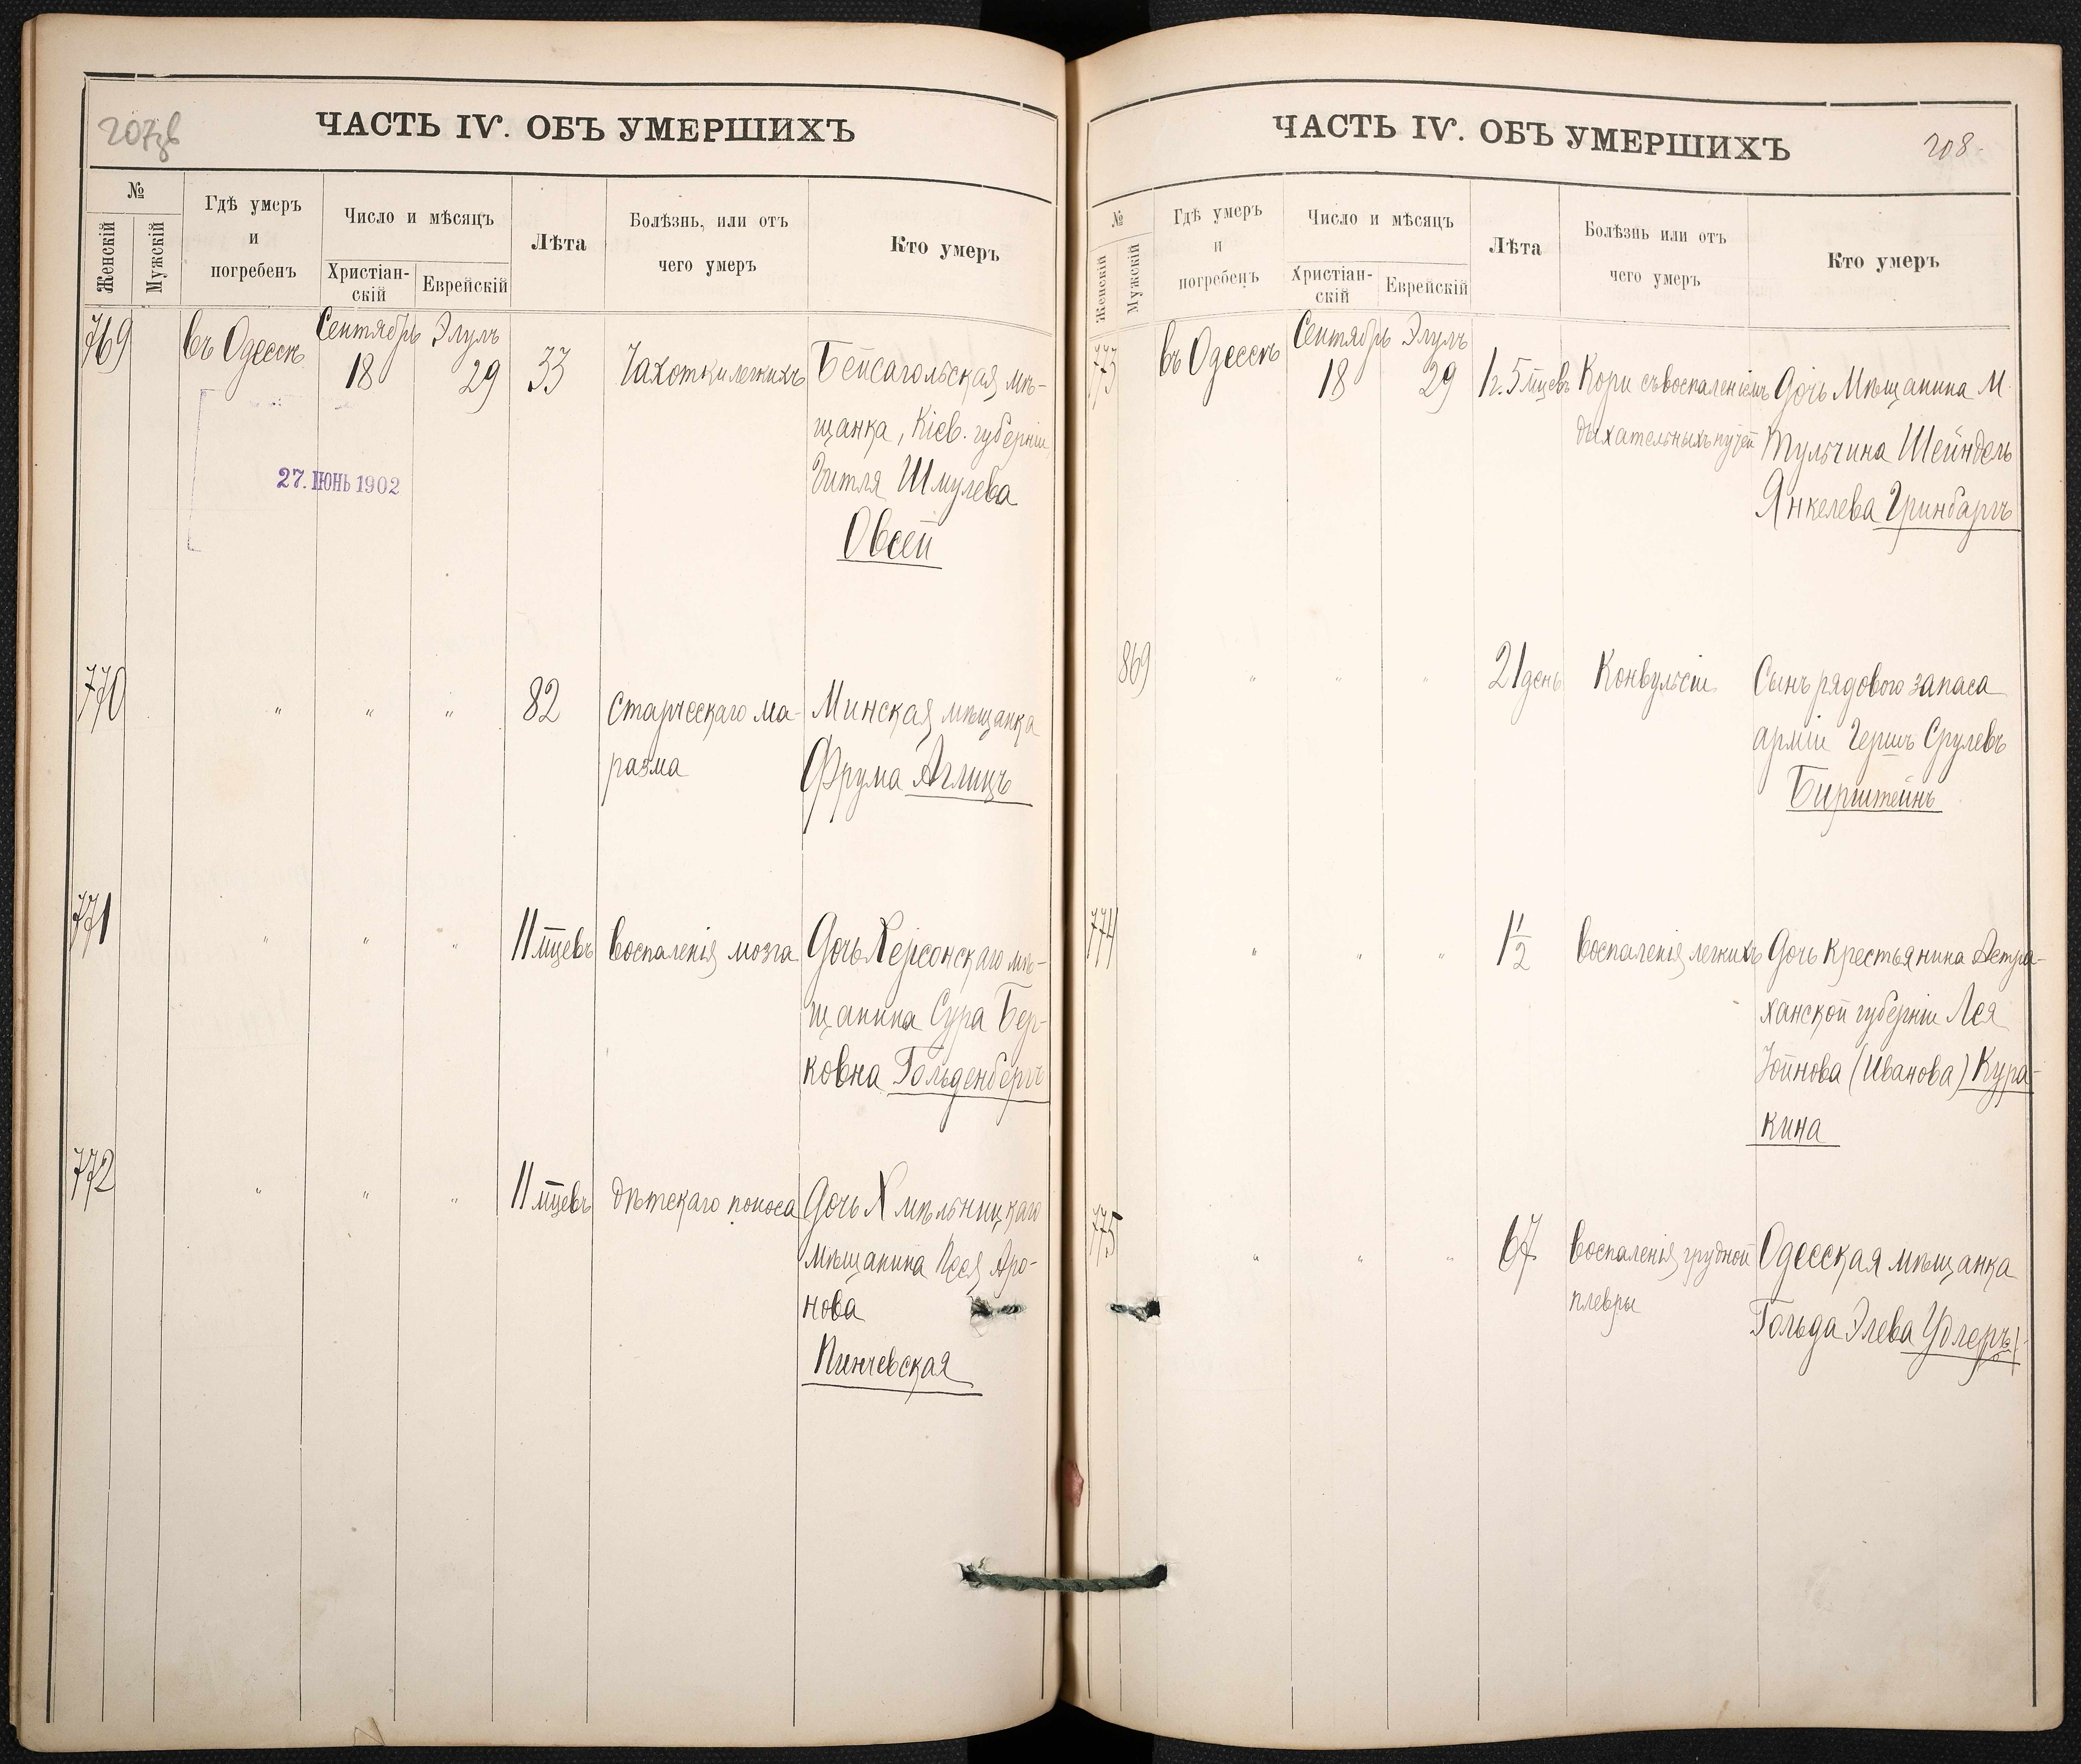 207об
ЧАСТЬ IV. ОБЪ УМЕРШИХЪ
№
Женскій
Мужскій
Гдѣ умеръ
и
погребенъ
Число и мѣсяцъ
Христіан-
скій
Еврейскій
Лѣта
Болѣзнь, или отъ
чего умеръ
Кто умеръ
769
въ Одессѣ
Сентябрь
18
Элулъ
29
33
Чахотки легкихъ
Бейсагольская мѣ-
щанка, Кіев. губерніи,
Гитля Шмулева
Овсей
27. ІЮНЬ 1902
770
" " "
82
старческаго ма-
разма
Минская мѣщанка
Фрума Аглицъ
771
" " "
11 мцевъ
воспаленія мозга
Дочь Херсонскаго мѣ-
щанина Сура Бер-
ковна Гольденбергъ
772
" " "
11 мцевъ
дѣтскаго поноса
Дочь Хмѣльницкаго
мѣщанина Песя Аро-
нова
Пинчевская
ЧАСТЬ IV. ОБЪ УМЕРШИХЪ
208.
№
Женскій
Мужскій
Гдѣ умеръ
и
погребенъ
Число и мѣсяцъ
Христіан-
скій
Еврейскій
Лѣта
Болѣзнь или отъ
чего умеръ
Кто умеръ
773
въ Одессѣ
Сентябрь
18
Элулъ
29
1 г. 5 мцевъ
Кори съ воспаленіемъ
дыхательныхъ путей
Дочь Мѣщанина М.
Тульчина Шейндель
Янкелева Гринбаргъ
869
" " "
21 день
Конвульсіи
Сынъ рядового запаса
арміи Гершъ Срулевъ
Бирштейнъ
774
" " "
1 1/2
воспаленія легкихъ
Дочь Крестьянина Астра-
ханской губерніи Лея
Іойнова (Иванова) Кура-
кина
775
" " "
67
воспаленія грудной
плевры
Одесская мѣщанка
Гольда Элева Удлеръ